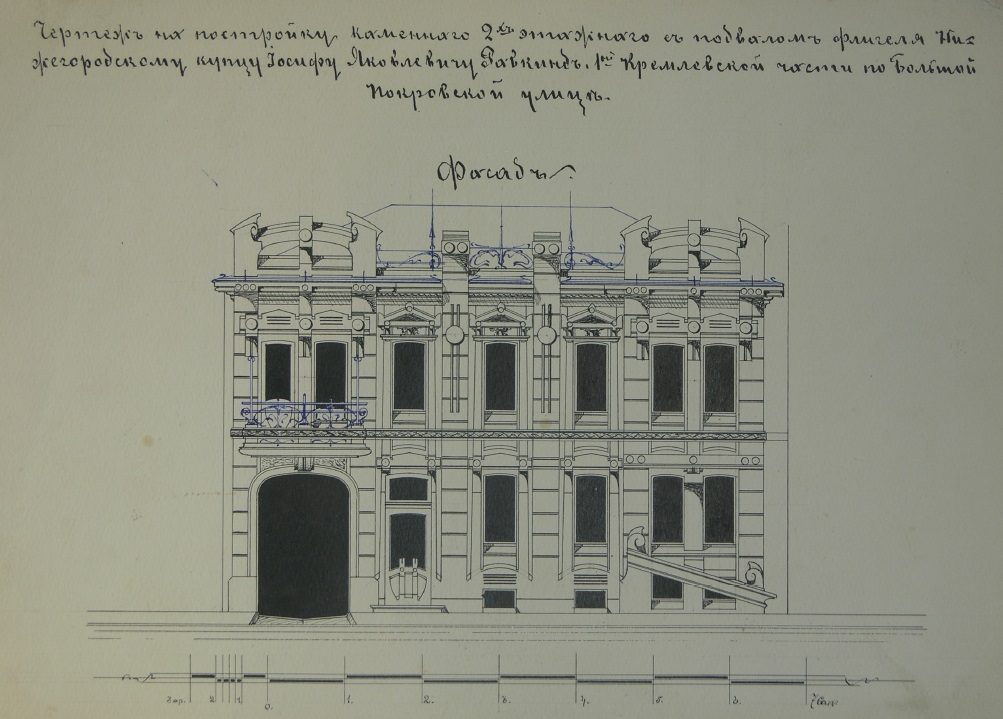 Чертежъ на постройку каменнаго 2хъ этажнаго съ подваломъ флигеля Ни-
жегородскому купцу Iосифу Яковлевичу Равкиндъ. 1ой Кремлевской части по Большой
Покровской улицѣ.
Фасадъ.
2 1 0. 1. 2. 3. 4. 5. 6. 7 саж